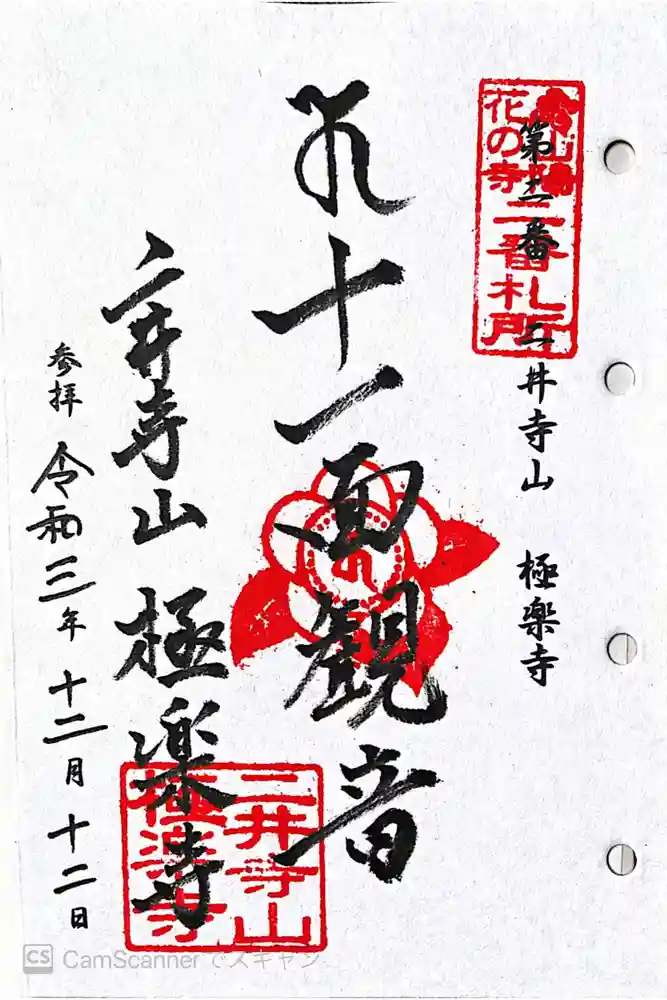 第二番 二井寺山 極楽寺
山陽
花の寺
二番札所
十一面観音
二井寺山 極楽寺
二井寺山
極楽寺
参拝 令和三年 十二月 十二日
CS CamScanner でスキャン